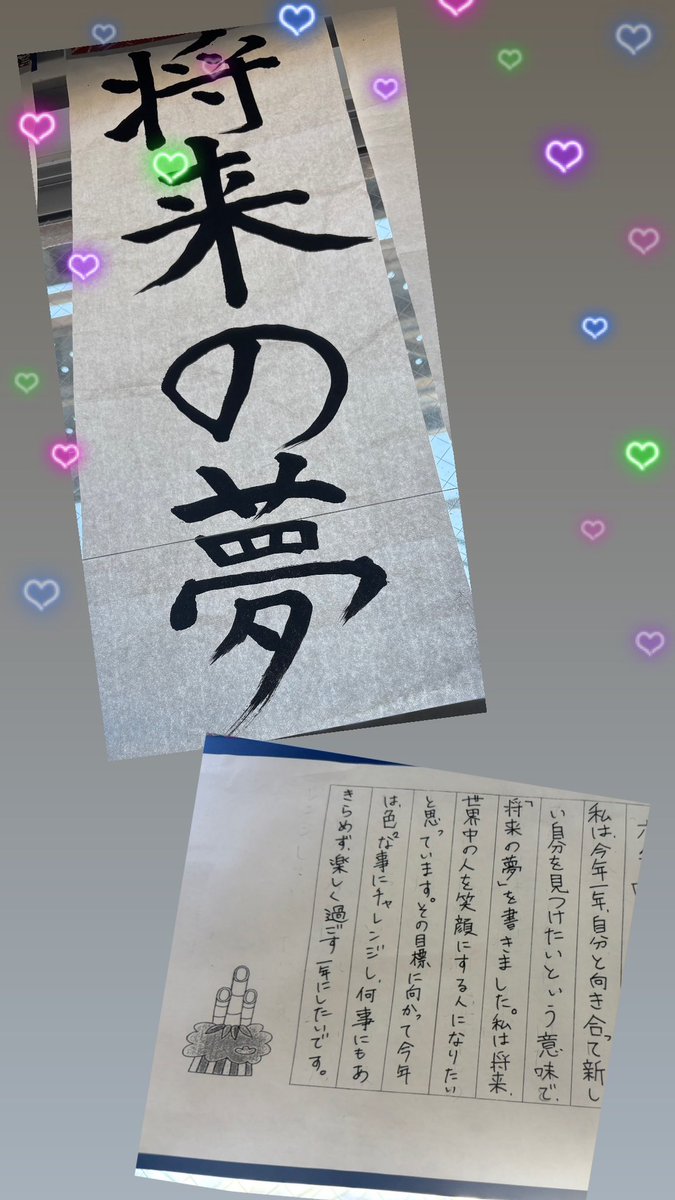 将来の夢
私は、今年一年、自分と向き合って新し
い自分を見つけたいという意味で、
「将来の夢」を書きました。私は将来、
世界中の人を笑顔にする人になりたい
と思っています。その目標に向かって今年
は、色々な事にチャレンジし、何事にもあ
きらめず、楽しく過ごす一年にしたいです。